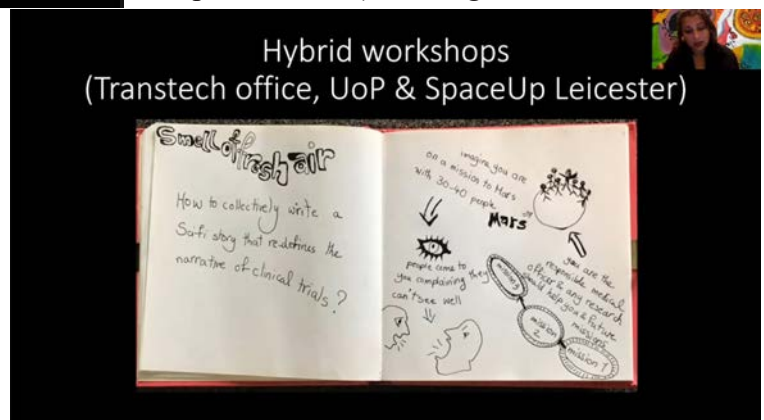 Hybrid workshops
(Transtech office, UoP & SpaceUp Leicester)
Smell of fresh air
How to collectively write a
Scifi story that re-defines the
narrative of clinical trials?
imagine you are
on a mission to Mars
with 30-40 people
Mars
people come to
you complaining they
can't see well
you are the
responsible medical
officer & any research
should help you & future
missions
mission 3
mission 2
mission 1